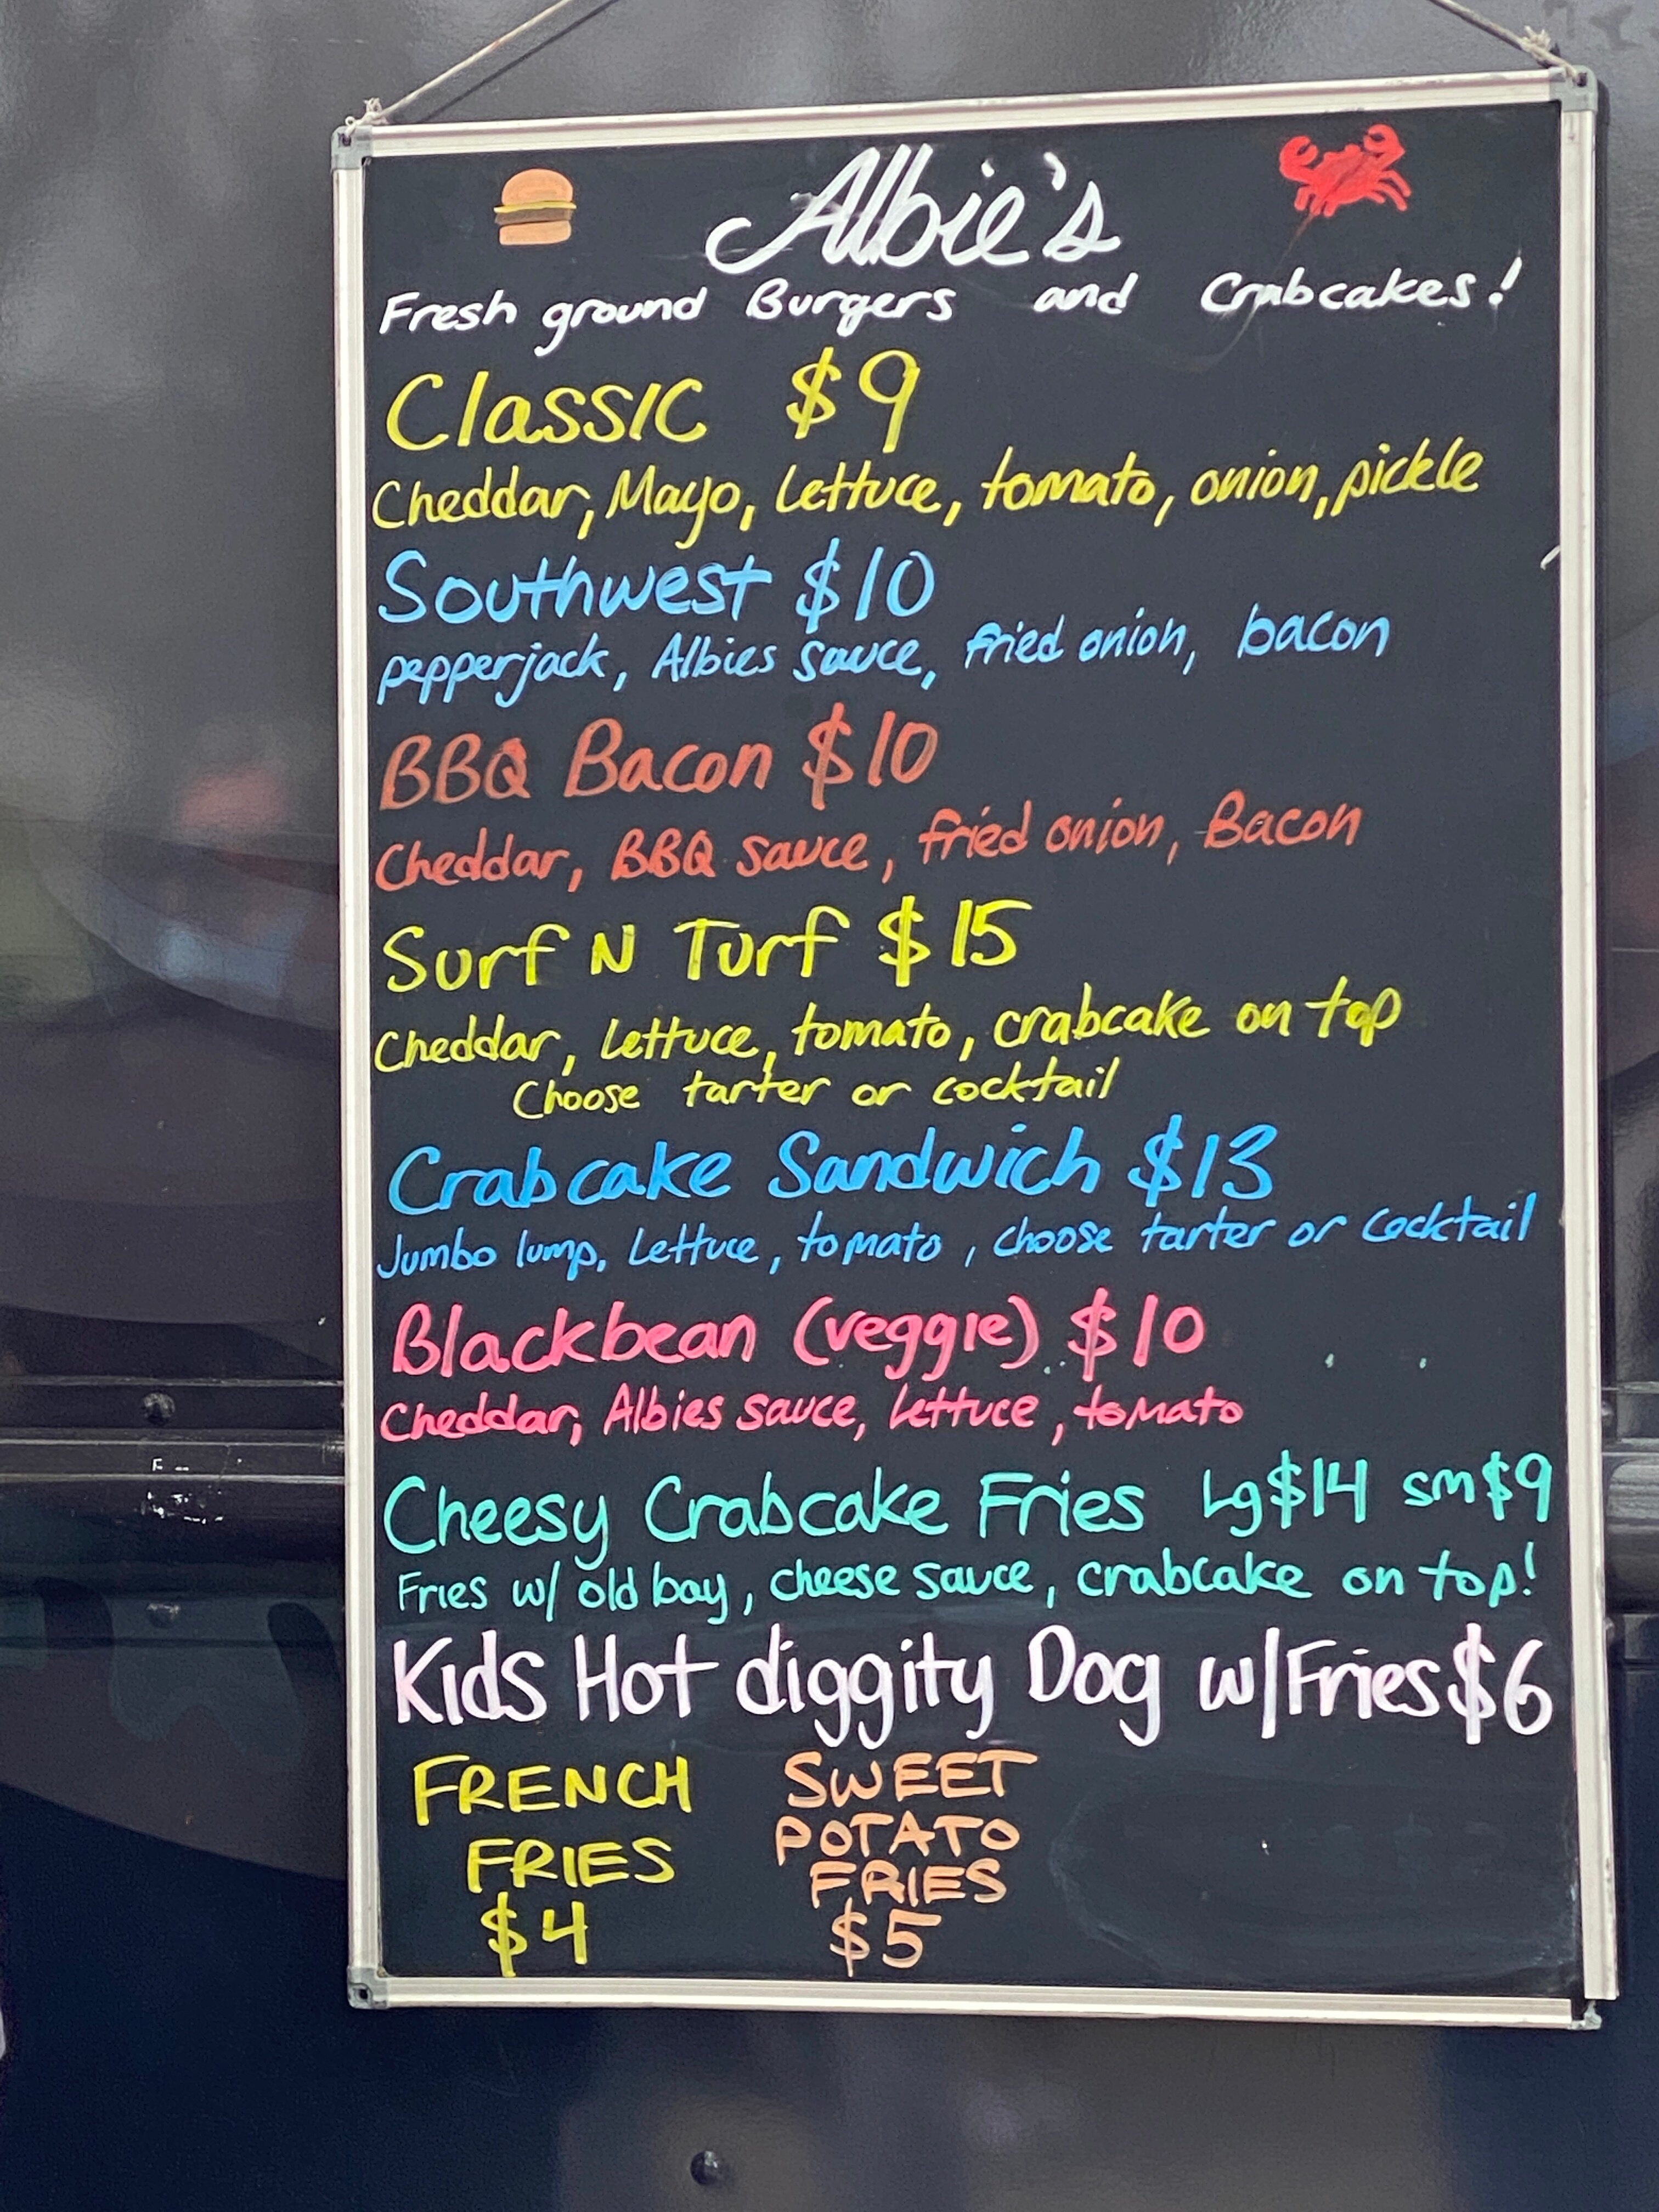 Albie's
Fresh ground Burgers and Crabcakes!
Classic $9
Cheddar, Mayo, lettuce, tomato, onion, pickle
Southwest $10
pepperjack, Albies sauce, fried onion, bacon
BBQ Bacon $10
Cheddar, BBQ sauce, fried onion, Bacon
Surf N Turf $15
Cheddar, lettuce, tomato, crabcake on top
Choose tarter or cocktail
Crabcake Sandwich $13
Jumbo lump, Lettuce, tomato, choose tarter or cocktail
Blackbean (veggie) $10
Cheddar, Albies sauce, lettuce, tomato
Cheesy Crabcake Fries Lg $14 sm $9
Fries w/ old bay, cheese sauce, crabcake on top!
Kids Hot diggity Dog w/Fries $6
FRENCH
FRIES
$4
SWEET
POTATO
FRIES
$5